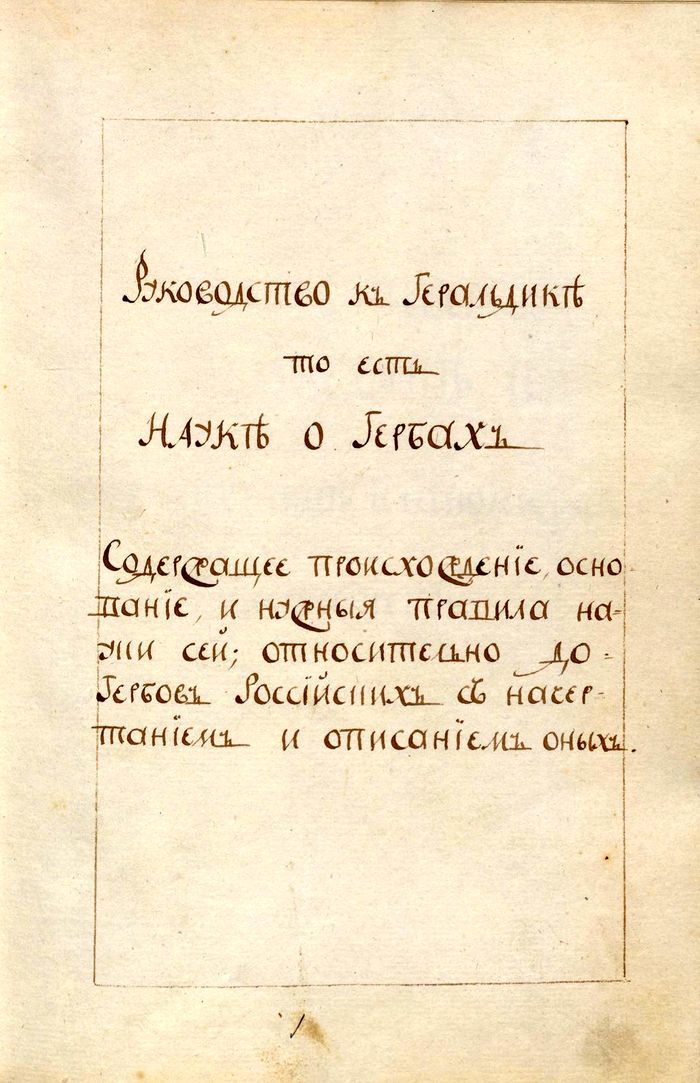 Руководство къ Геральдикѣ
то есть
Наукѣ о Гербахъ
Содержащее происхожденіе, осно-
ваніе, и нужныя правила на-
уки сей; относительно до-
Гербовъ Россійскихъ съ начер-
таніемъ и описаніемъ оныхъ.
1